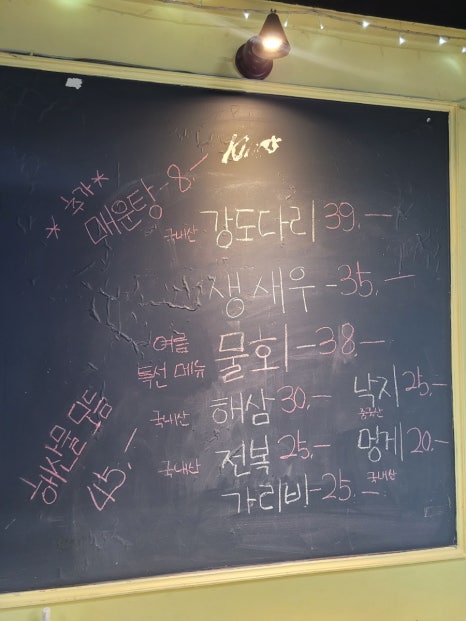 *추가*
매운탕-8.-
국내산 강도다리 39.-
생새우-35.-
여름
특선 메뉴 물회-38-
국내산 해삼 30.-
낙지 25.-
중국산
국내산 전복 25.-
멍게 20.-
국내산
가리비-25.-
해산물모듬
45.-